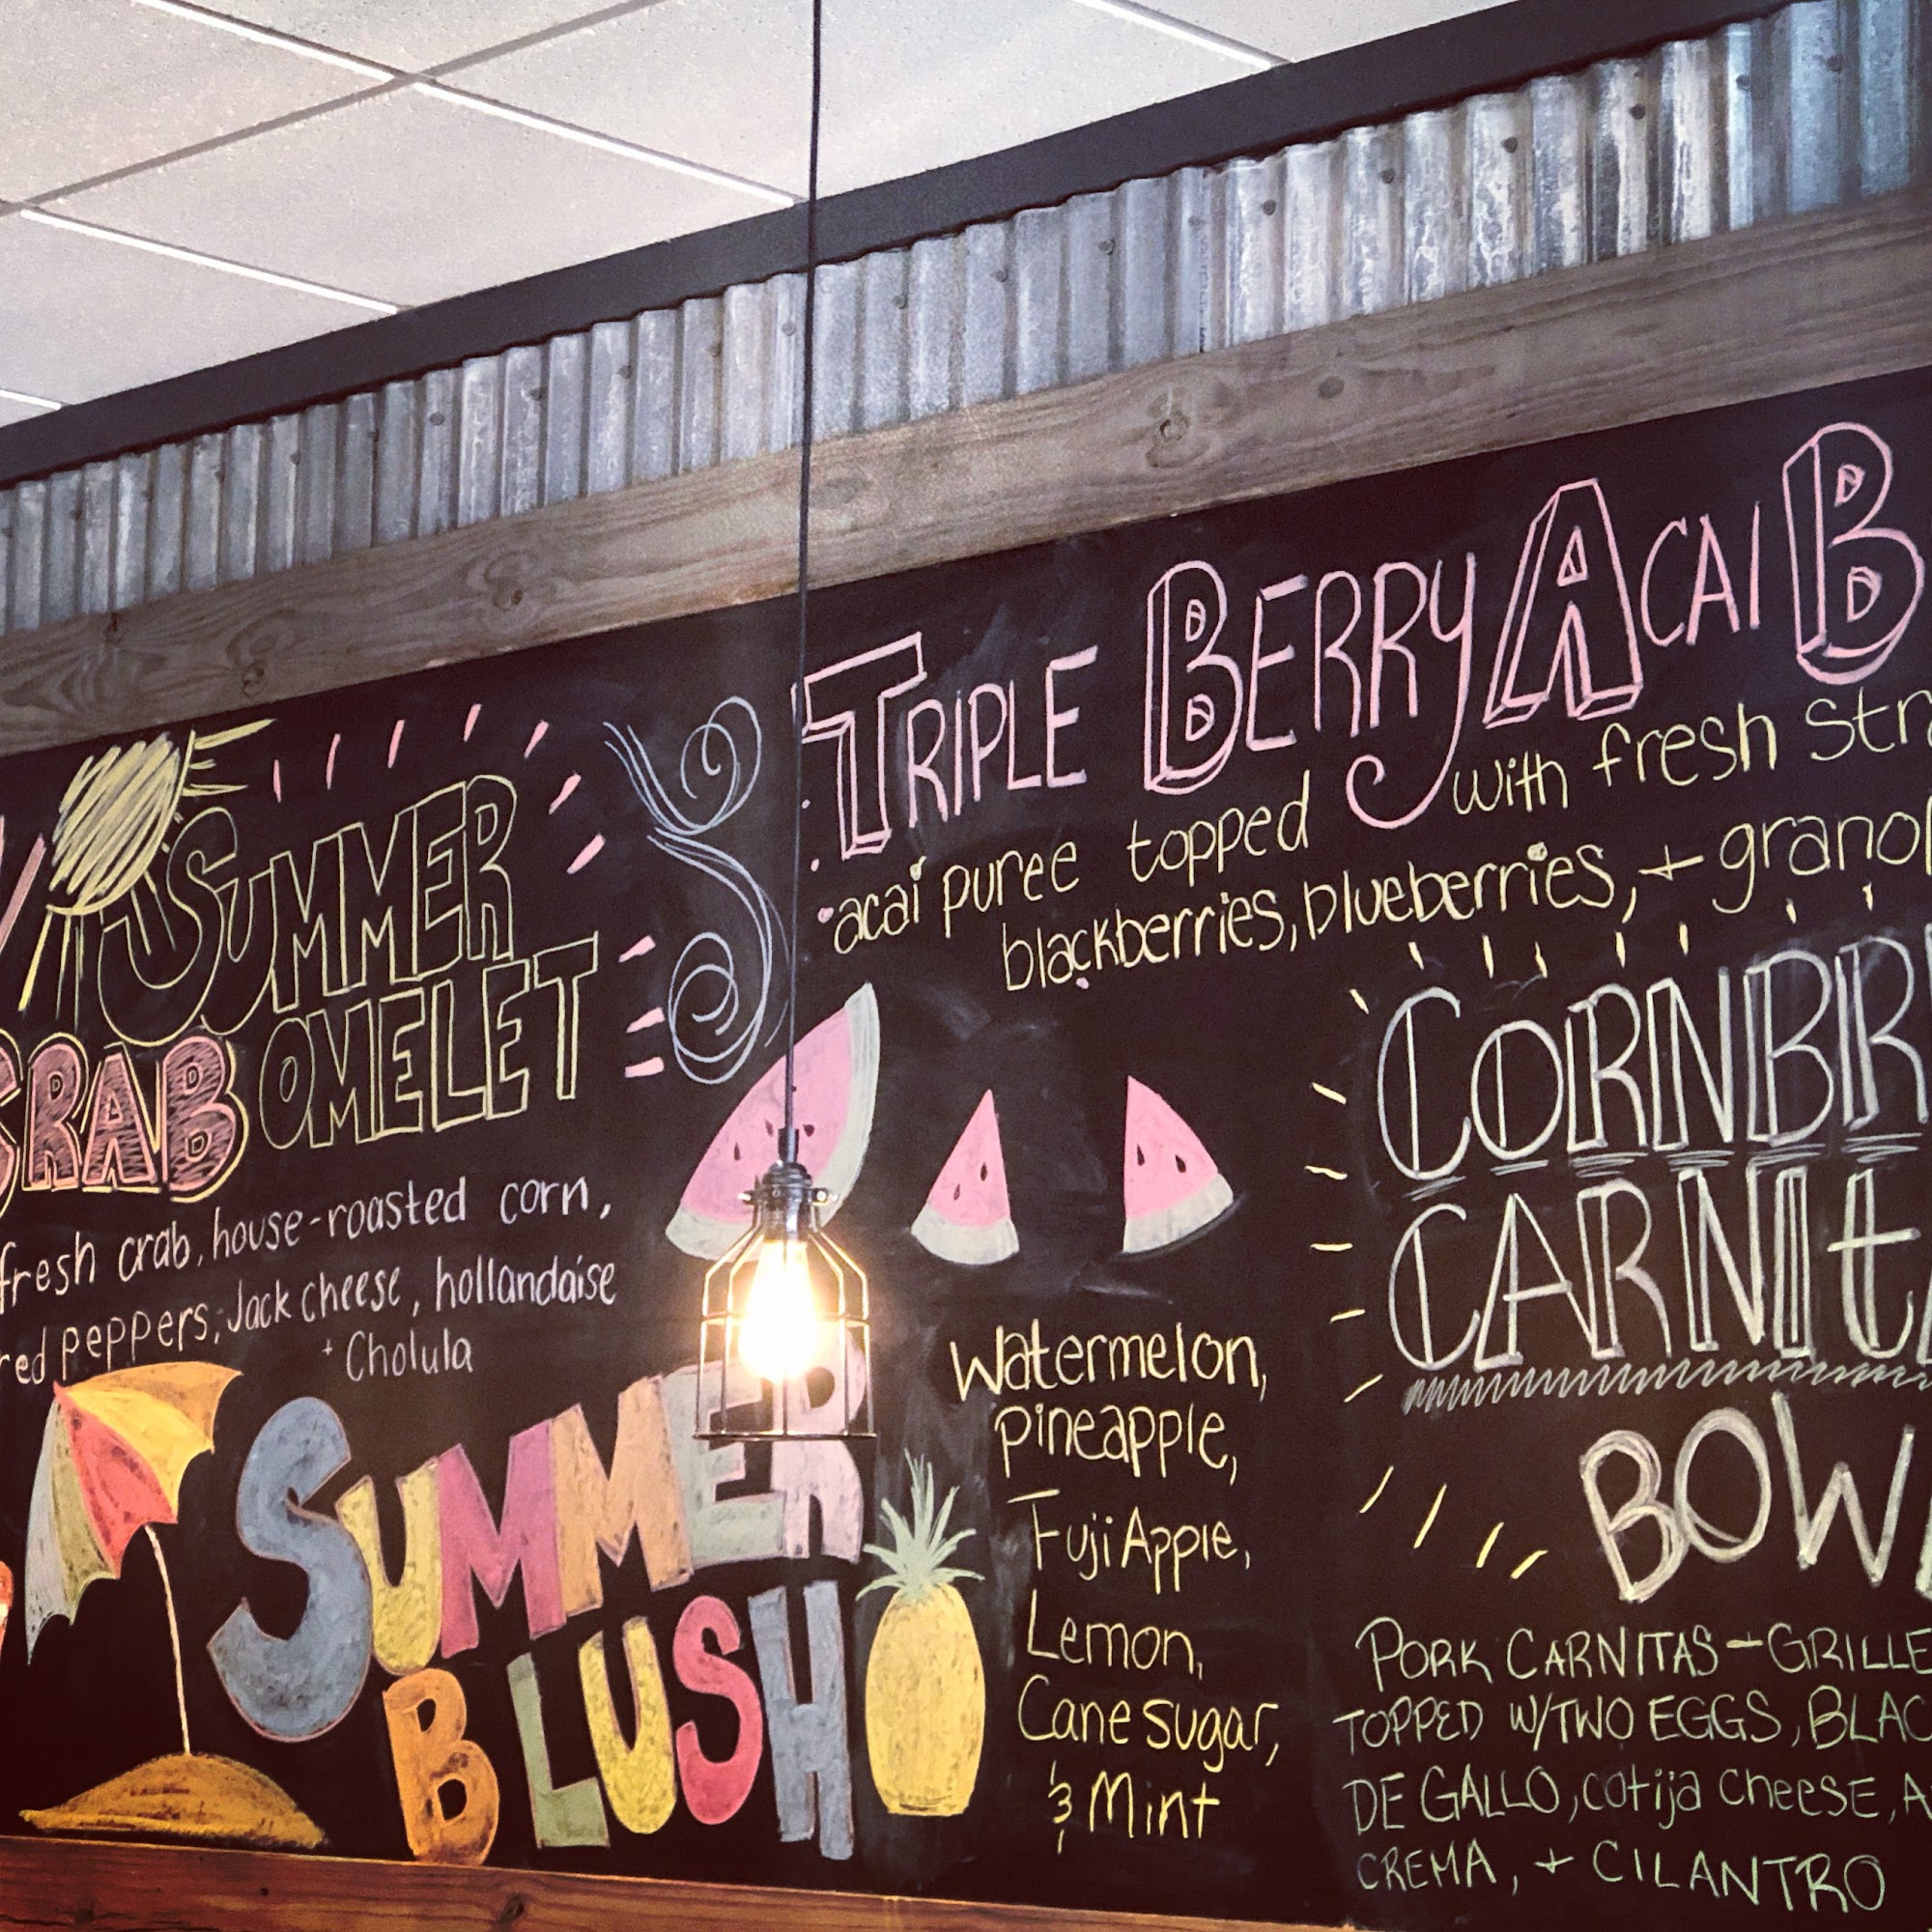 SUMMER
CRAB OMELET
fresh crab, house-roasted corn,
red peppers, Jack cheese, hollandaise
+ Cholula
SUMMER
BLUSH
Watermelon,
Pineapple,
Fuji Apple,
Lemon,
Cane sugar,
& Mint
TRIPLE BERRY ACAI B
acai puree topped with fresh str
blackberries, blueberries, + granol
CORNBR
CARNIt
BOWL
PORK CARNITAS - GRILLE
TOPPED W/TWO EGGS, BLAC
DE GALLO, cotija cheese, A
CREMA, + CILANTRO